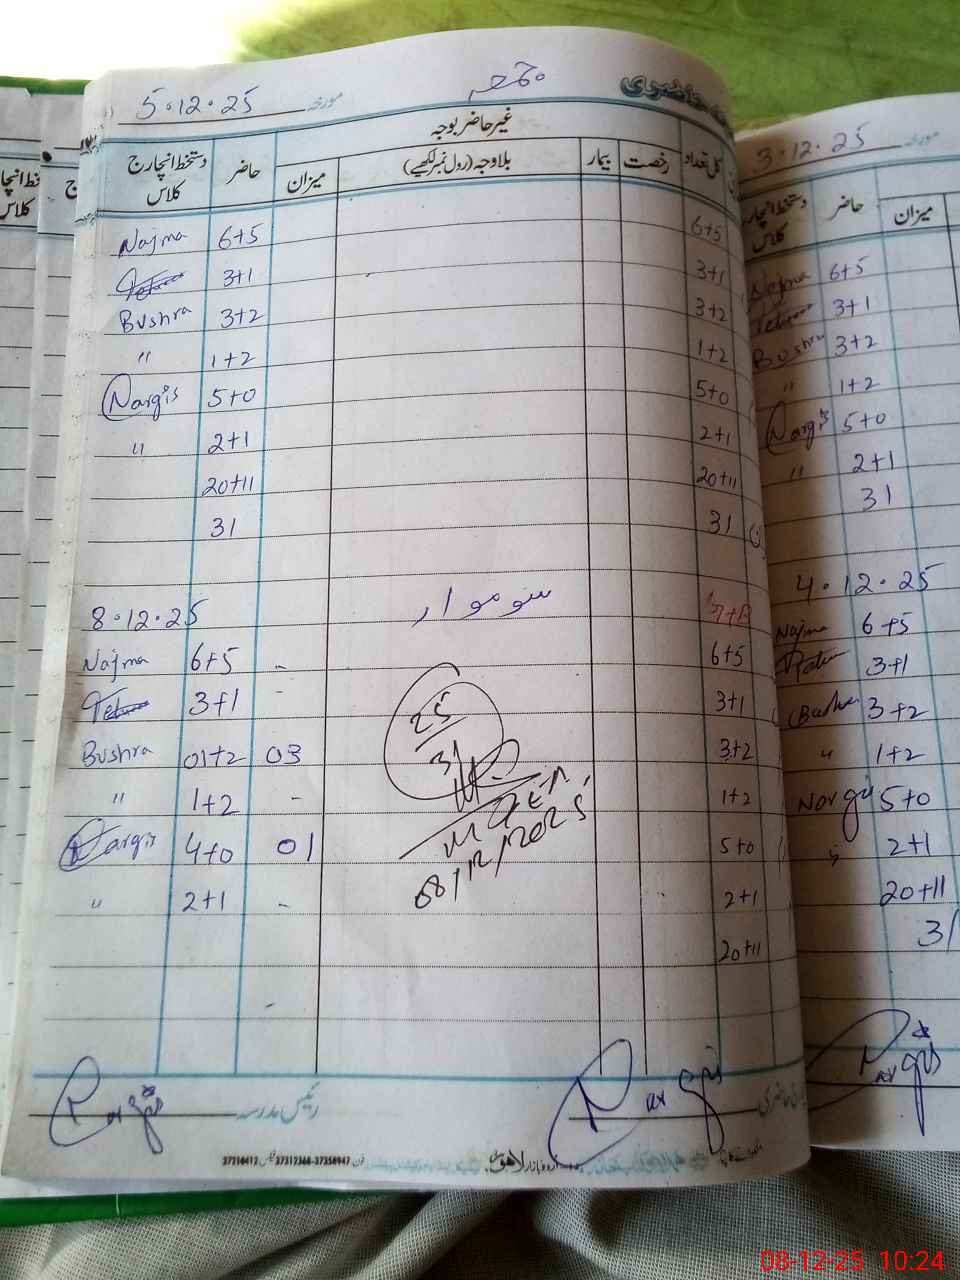 حاضری
جمعہ
مورخہ 5.12.25
غیر حاضر بوجہ
کل تعداد رخصت بیمار بلاوجہ (رول نمبر لکھیے) میزان حاضر دستخط انچارج کلاس
Najma 6+5 6+5
3+1 3+1
Bushra 3+2 3+2
" 1+2 1+2
Nargis 5+0 5+0
" 2+1 2+1
20+11 20+11
31 31
8.12.25 سوموار
Najma 6+5 - 6+5
3+1 - 3+1
Bushra 01+2 03 3+2
" 1+2 - 1+2
Nargis 4+0 01 5+0
" 2+1 - 2+1
20+11
25
31
08/12/2025
Nargis رئیس مدرسہ
Nargis
لاہور
فون 37312368-37358947 فیکس 37210412
مورخہ 3.12.25
میزان حاضر دستخط انچارج کلاس
Najma 6+5
3+1
Bushra 3+2
" 1+2
Nargis 5+0
" 2+1
31
4.12.25
Najma 6+5
3+1
Bushra 3+2
" 1+2
Nargis 5+0
" 2+1
20+11
31
Nargis
08-12-25 10:24